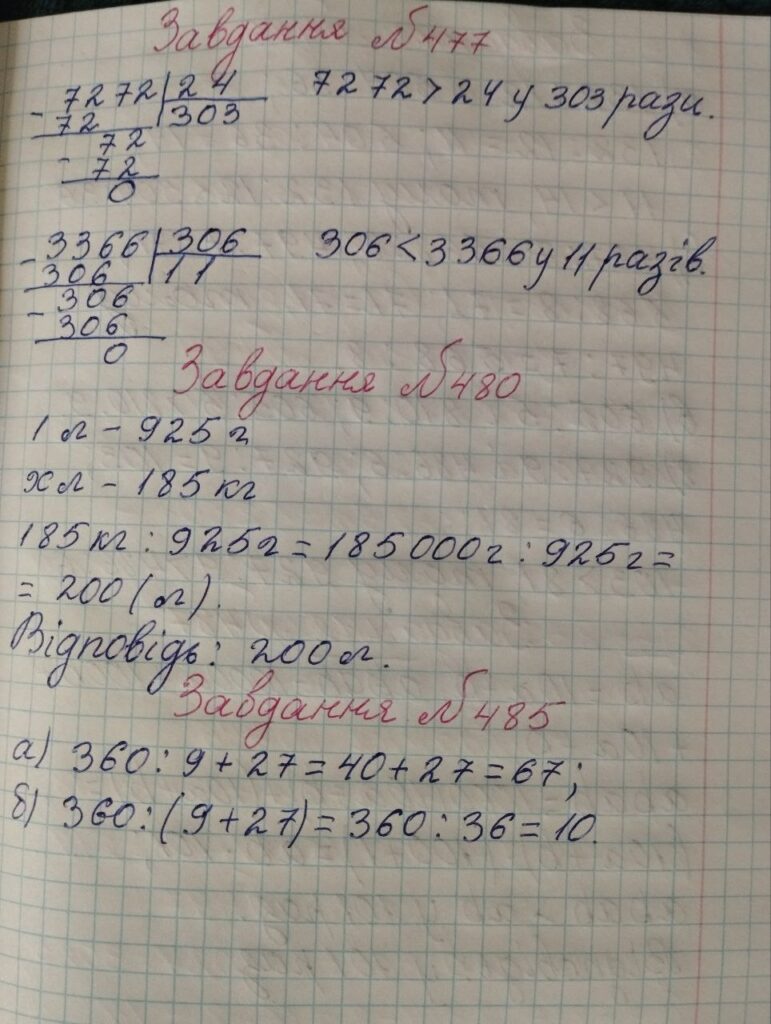 Завдання №477
7272 | 24 7272 > 24 у 303 рази.
- 72 | 303
72
- 72
0
- 3366 | 306 306 < 3366 у 11 разів.
306 | 11
- 306
306
0
Завдання №480
1 л - 925 г
х л - 185 кг
185 кг : 925 г = 185 000 г : 925 г =
= 200 (л).
Відповідь: 200 л.
Завдання №485
а) 360 : 9 + 27 = 40 + 27 = 67;
б) 360 : (9 + 27) = 360 : 36 = 10.